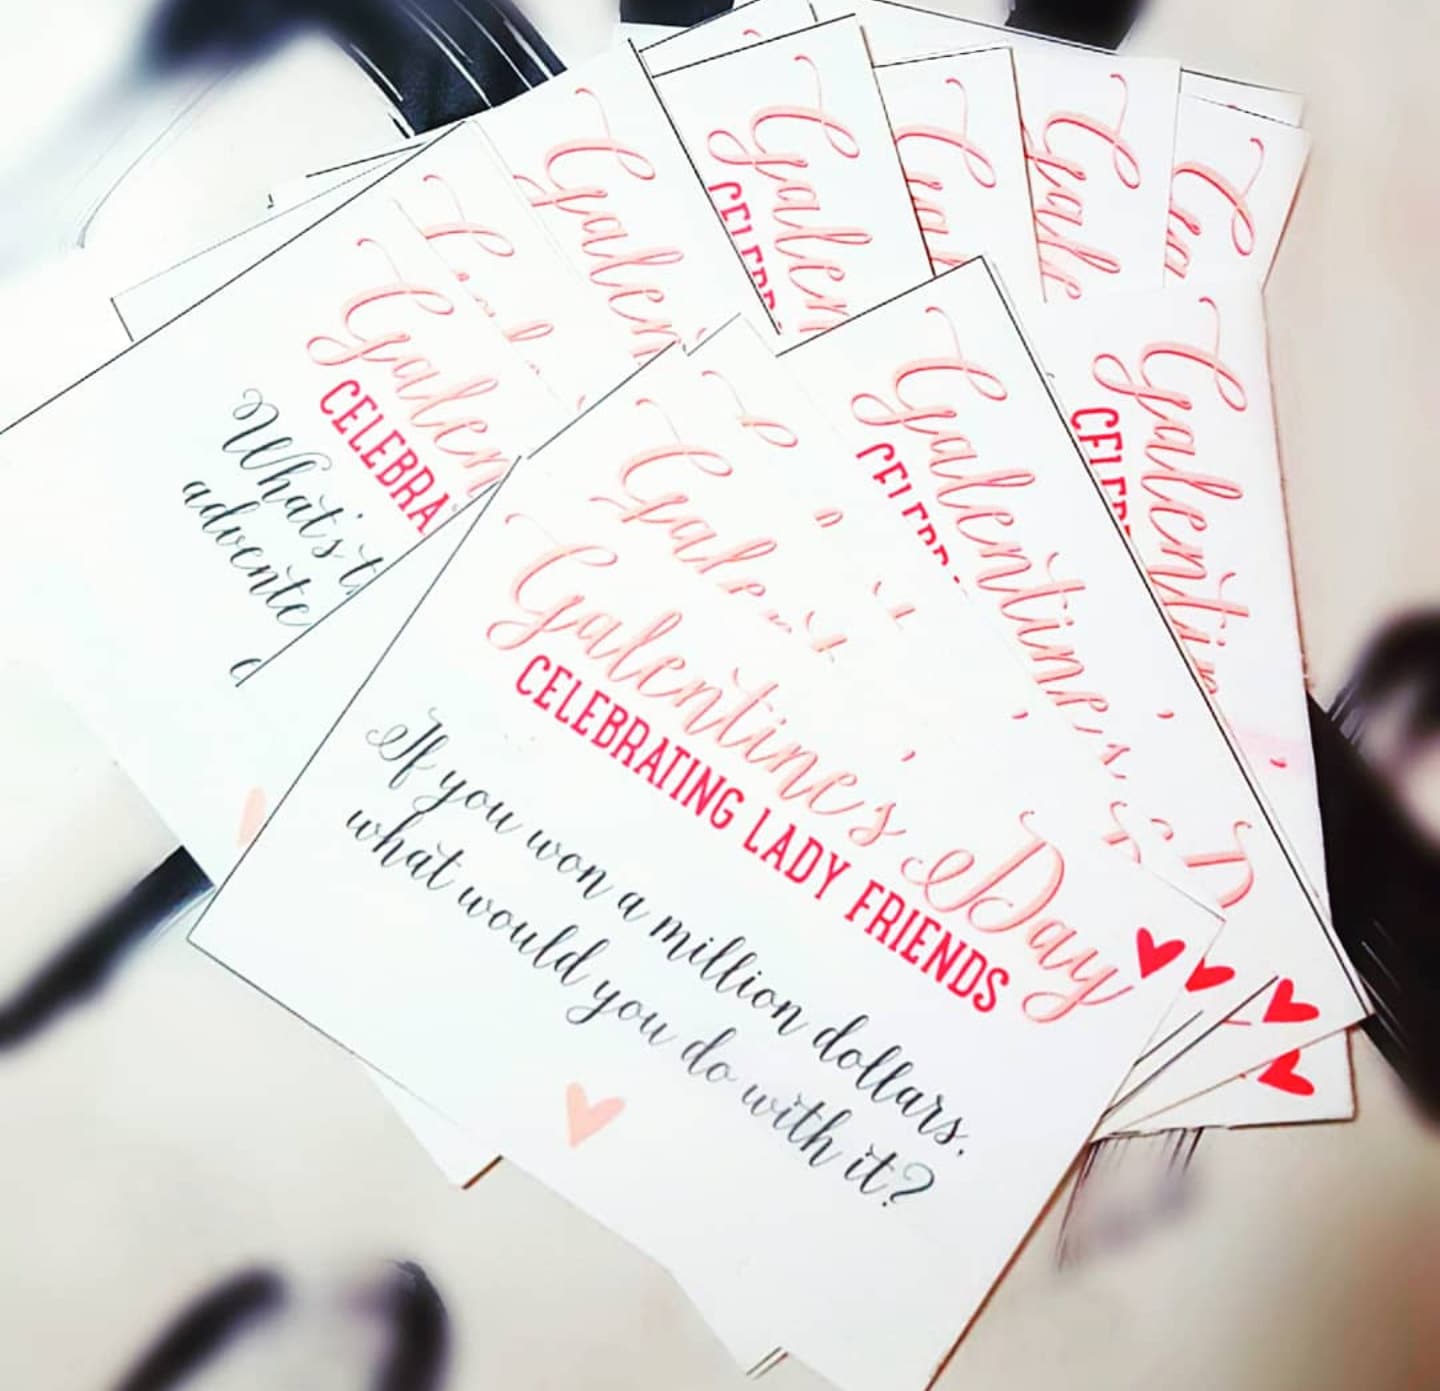 Galentine's Day
CELEBRATING LADY FRIENDS
If you won a million dollars,
what would you do with it?
Galen
CELEBRA
What's t
advente
a
Galen
Galen
CELEBR
Gale
Galentine's D
CELEBR
Galentin
CELEBR
Galenti